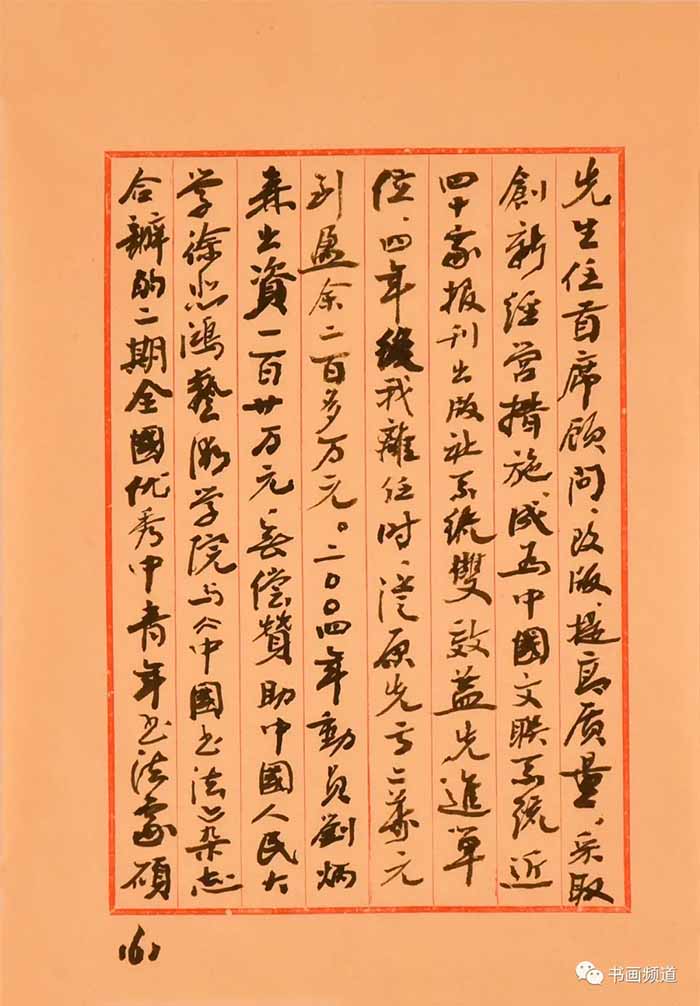 先生任首席顾问、改版、提高质量，采取
創新經营措施，成为中國文联系统近
四十家报刊出版社系统雙效益先進單
位、四年後我離任时、從原先亏二萬元
到盈余二百多万元。二〇〇四年動员劉炳
森出資一百廿万元，無偿赞助中國人民大
学徐悲鴻藝術学院与《中國书法》杂志
合辦的二期全國优秀中青年书法家碩
(6)
书画频道